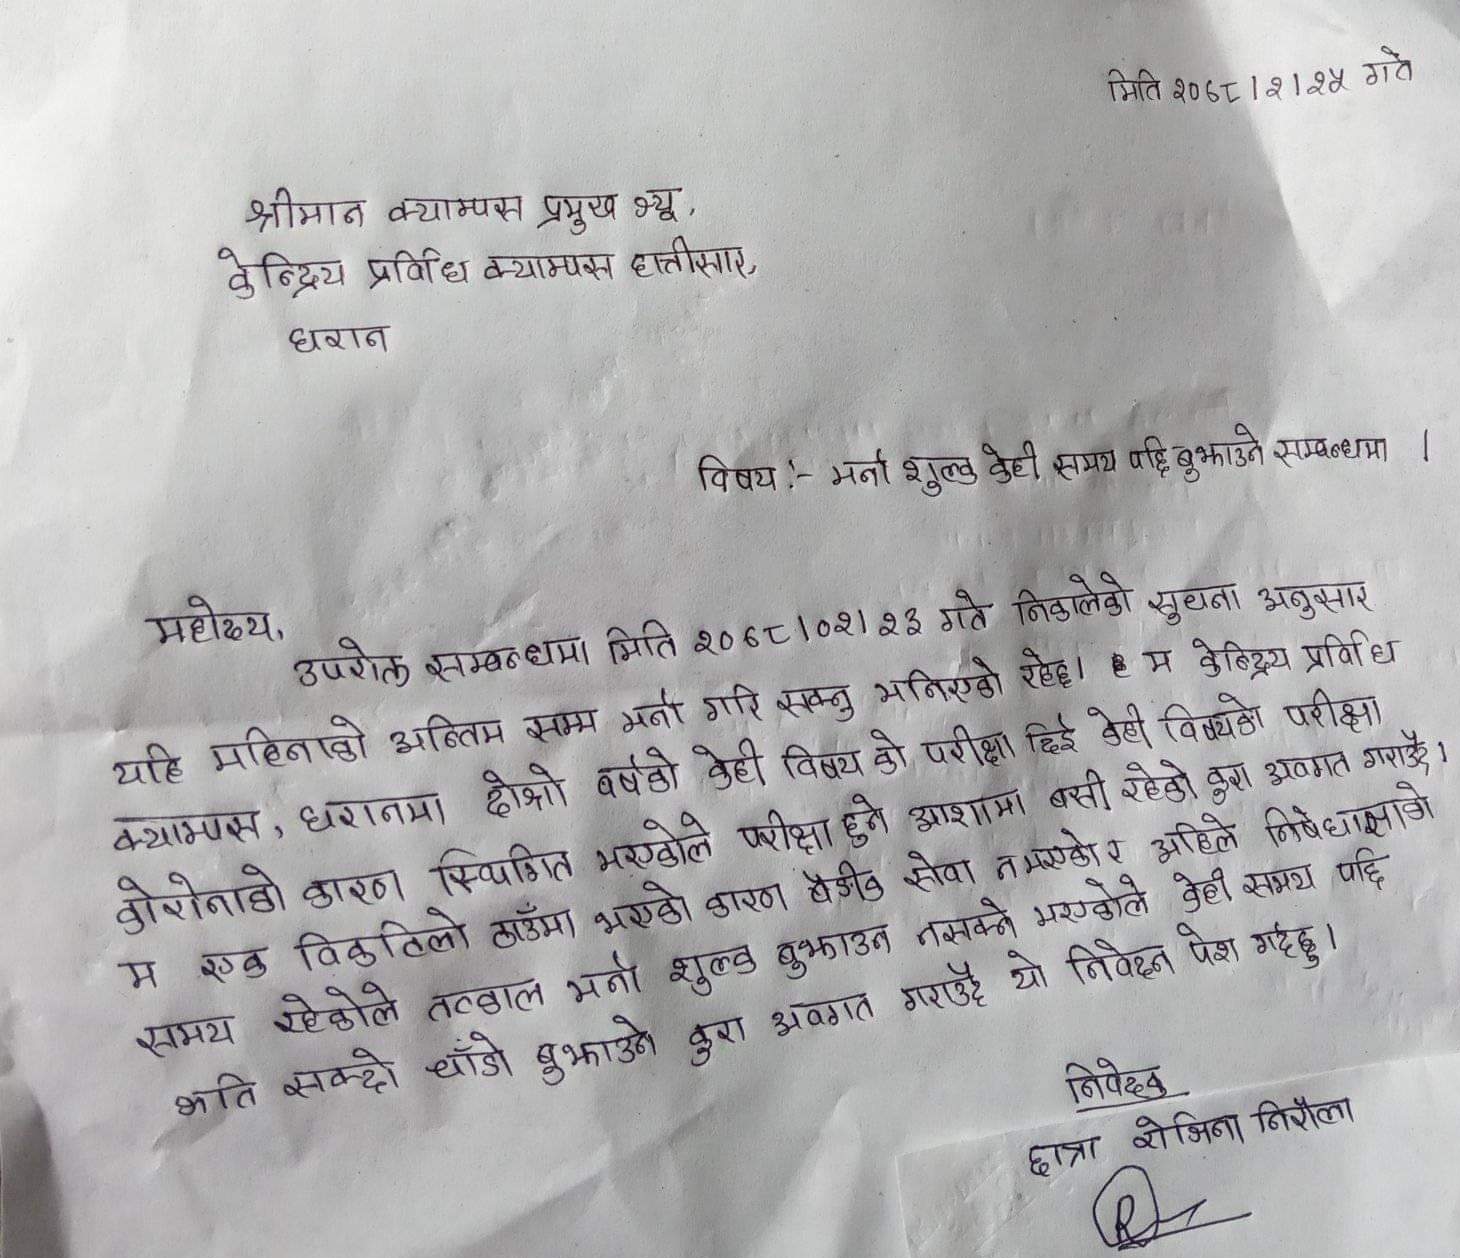 मिति २०७८।२।२५ गते
श्रीमान क्याम्पस प्रमुख ज्यू,
केन्द्रिय प्रविधि क्याम्पस हात्तीसार,
धरान
विषय :- भर्ना शुल्क केही समय पछि बुझाउने सम्बन्धमा ।
महोदय,
उपरोक्त सम्बन्धमा मिति २०७८।०२।२३ गते निकालेको सुचना अनुसार
यहि महिनाको अन्तिम सम्म भर्ना गरि सक्नु भनिएको रहेछ। म केन्द्रिय प्रविधि
क्याम्पस, धरानमा दोश्रो वर्षको केही विषय को परीक्षा दिई केही विषयको परीक्षा
कोरोनाको कारण स्थिगित भएकोले परीक्षा हुने आशामा बसी रहेको कुरा अवगत गराउँदै।
म एक विकटिलो ठाउँमा भएको कारण बैङ्कीक सेवा नभएको र अहिले निषेधाज्ञाको
समय रहेकोले तत्काल भर्ना शुल्क बुझाउन नसक्ने भएकोले केही समय पछि
जति सक्दो चाँडो बुझाउने कुरा अवगत गराउँदै यो निवेदन पेश गर्दछु।
निवेदक
छात्रा रोजिना निरौला